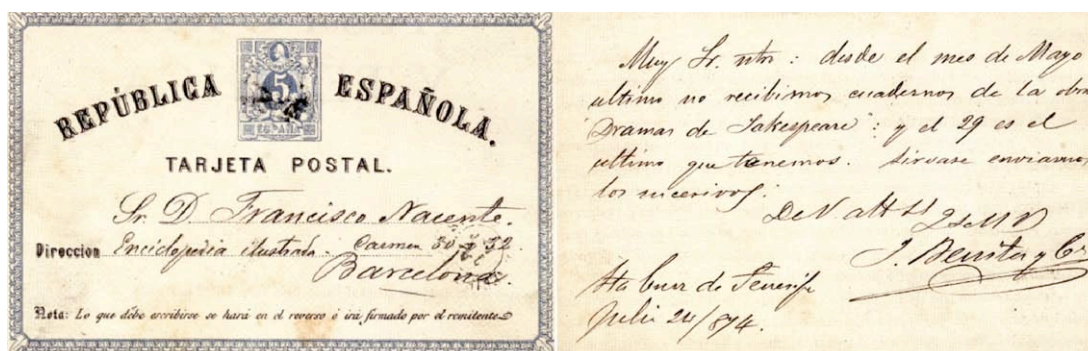 REPÚBLICA ESPAÑOLA.
5
ESPAÑA
TARJETA POSTAL.
Sr. D. Francisco Nacente.
Direccion Enciclopedia ilustrada. Carmen 30 32
Barcelona.
Nota: Lo que debe escribirse se hará en el reverso é irá firmado por el remitente
Muy Sr. ntro : desde el mes de Mayo
ultimo no recibimos cuadernos de la obra
"Dramas de Sakespeare": y el 29 es el
ultimo que tenemos. Sirvase enviarnos
los sucesivos.
De V. att SS
J. Benitez y Cª
Sta Cruz de Tenerife
Julio 24/874.